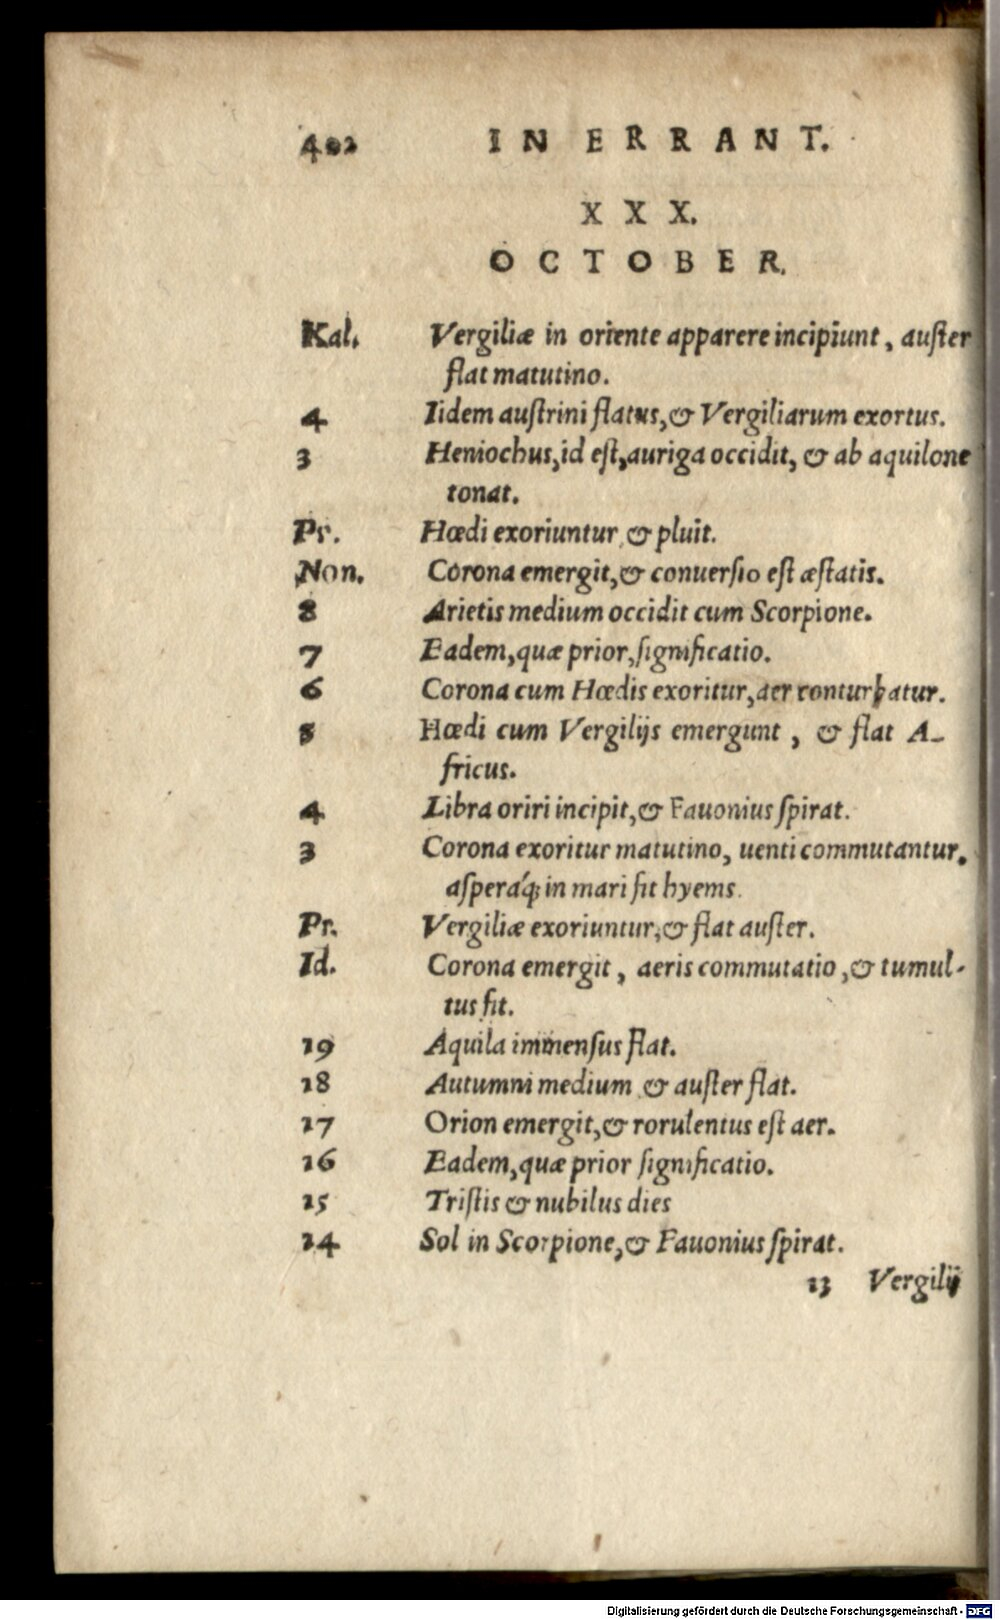 402 IN ERRANT.
XXX.
OCTOBER.
Kal. Vergiliæ in oriente apparere incipiunt, auſter
flat matutino.
4 Iidem auſtrini flatus, & Vergiliarum exortus.
3 Heniochus, id eſt, auriga occidit, & ab aquilone
tonat.
Pr. Hœdi exoriuntur, & pluit.
Non. Corona emergit, & conuerſio eſt æſtatis.
8 Arietis medium occidit cum Scorpione.
7 Eadem, quæ prior, ſignificatio.
6 Corona cum Hœdis exoritur, aer conturbatur.
5 Hœdi cum Vergilijs emergunt, & flat A-
fricus.
4 Libra oriri incipit, & Fauonius ſpirat.
3 Corona exoritur matutino, uenti commutantur.
aſperáq; in mari fit hyems.
Pr. Vergiliæ exoriuntur, & flat auſter.
Id. Corona emergit, aeris commutatio, & tumul-
tus fit.
19 Aquila immenſus flat.
18 Autumni medium & auſter flat.
17 Orion emergit, & rorulentus eſt aer.
16 Eadem, quæ prior ſignificatio.
15 Triſtis & nubilus dies
14 Sol in Scorpione, & Fauonius ſpirat.
13 Vergilij
Digitalisierung gefördert durch die Deutsche Forschungsgemeinschaft - DFG